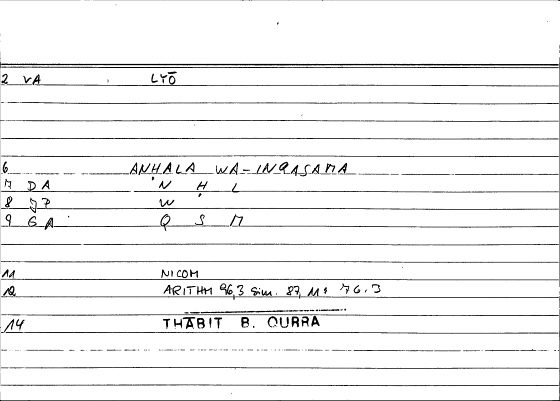 2 VA LYŌ
6 ANḤALA WA-INQASAMA
7 DA N Ḥ L
8 JP W
9 GA Q S M
11 NICOM
12 ARITHM 96,3 sim. 87, 76.3
14 THĀBIT B. QURRA